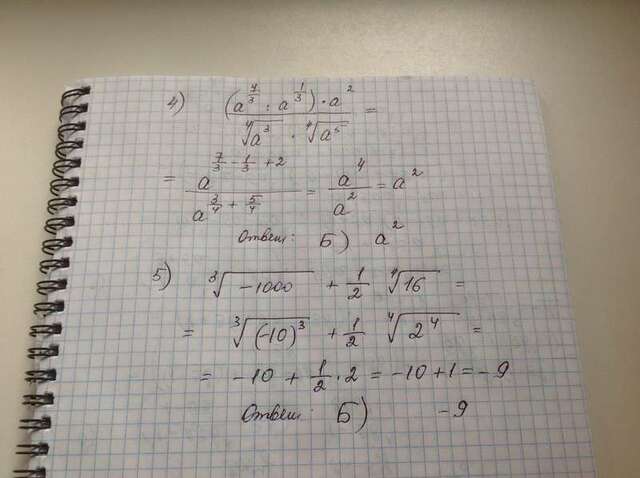 4) (a^{7/3} : a^{1/3}) · a^2 / (∜a^3 · ∜a^5) =
= a^{7/3 - 1/3 + 2} / a^{3/4 + 5/4} = a^4 / a^2 = a^2
Ответ: Б) a^2
5) ∛-1000 + 1/2 ∜16 =
= ∛(-10)^3 + 1/2 ∜2^4 =
= -10 + 1/2 · 2 = -10 + 1 = -9
Ответ: Б) -9